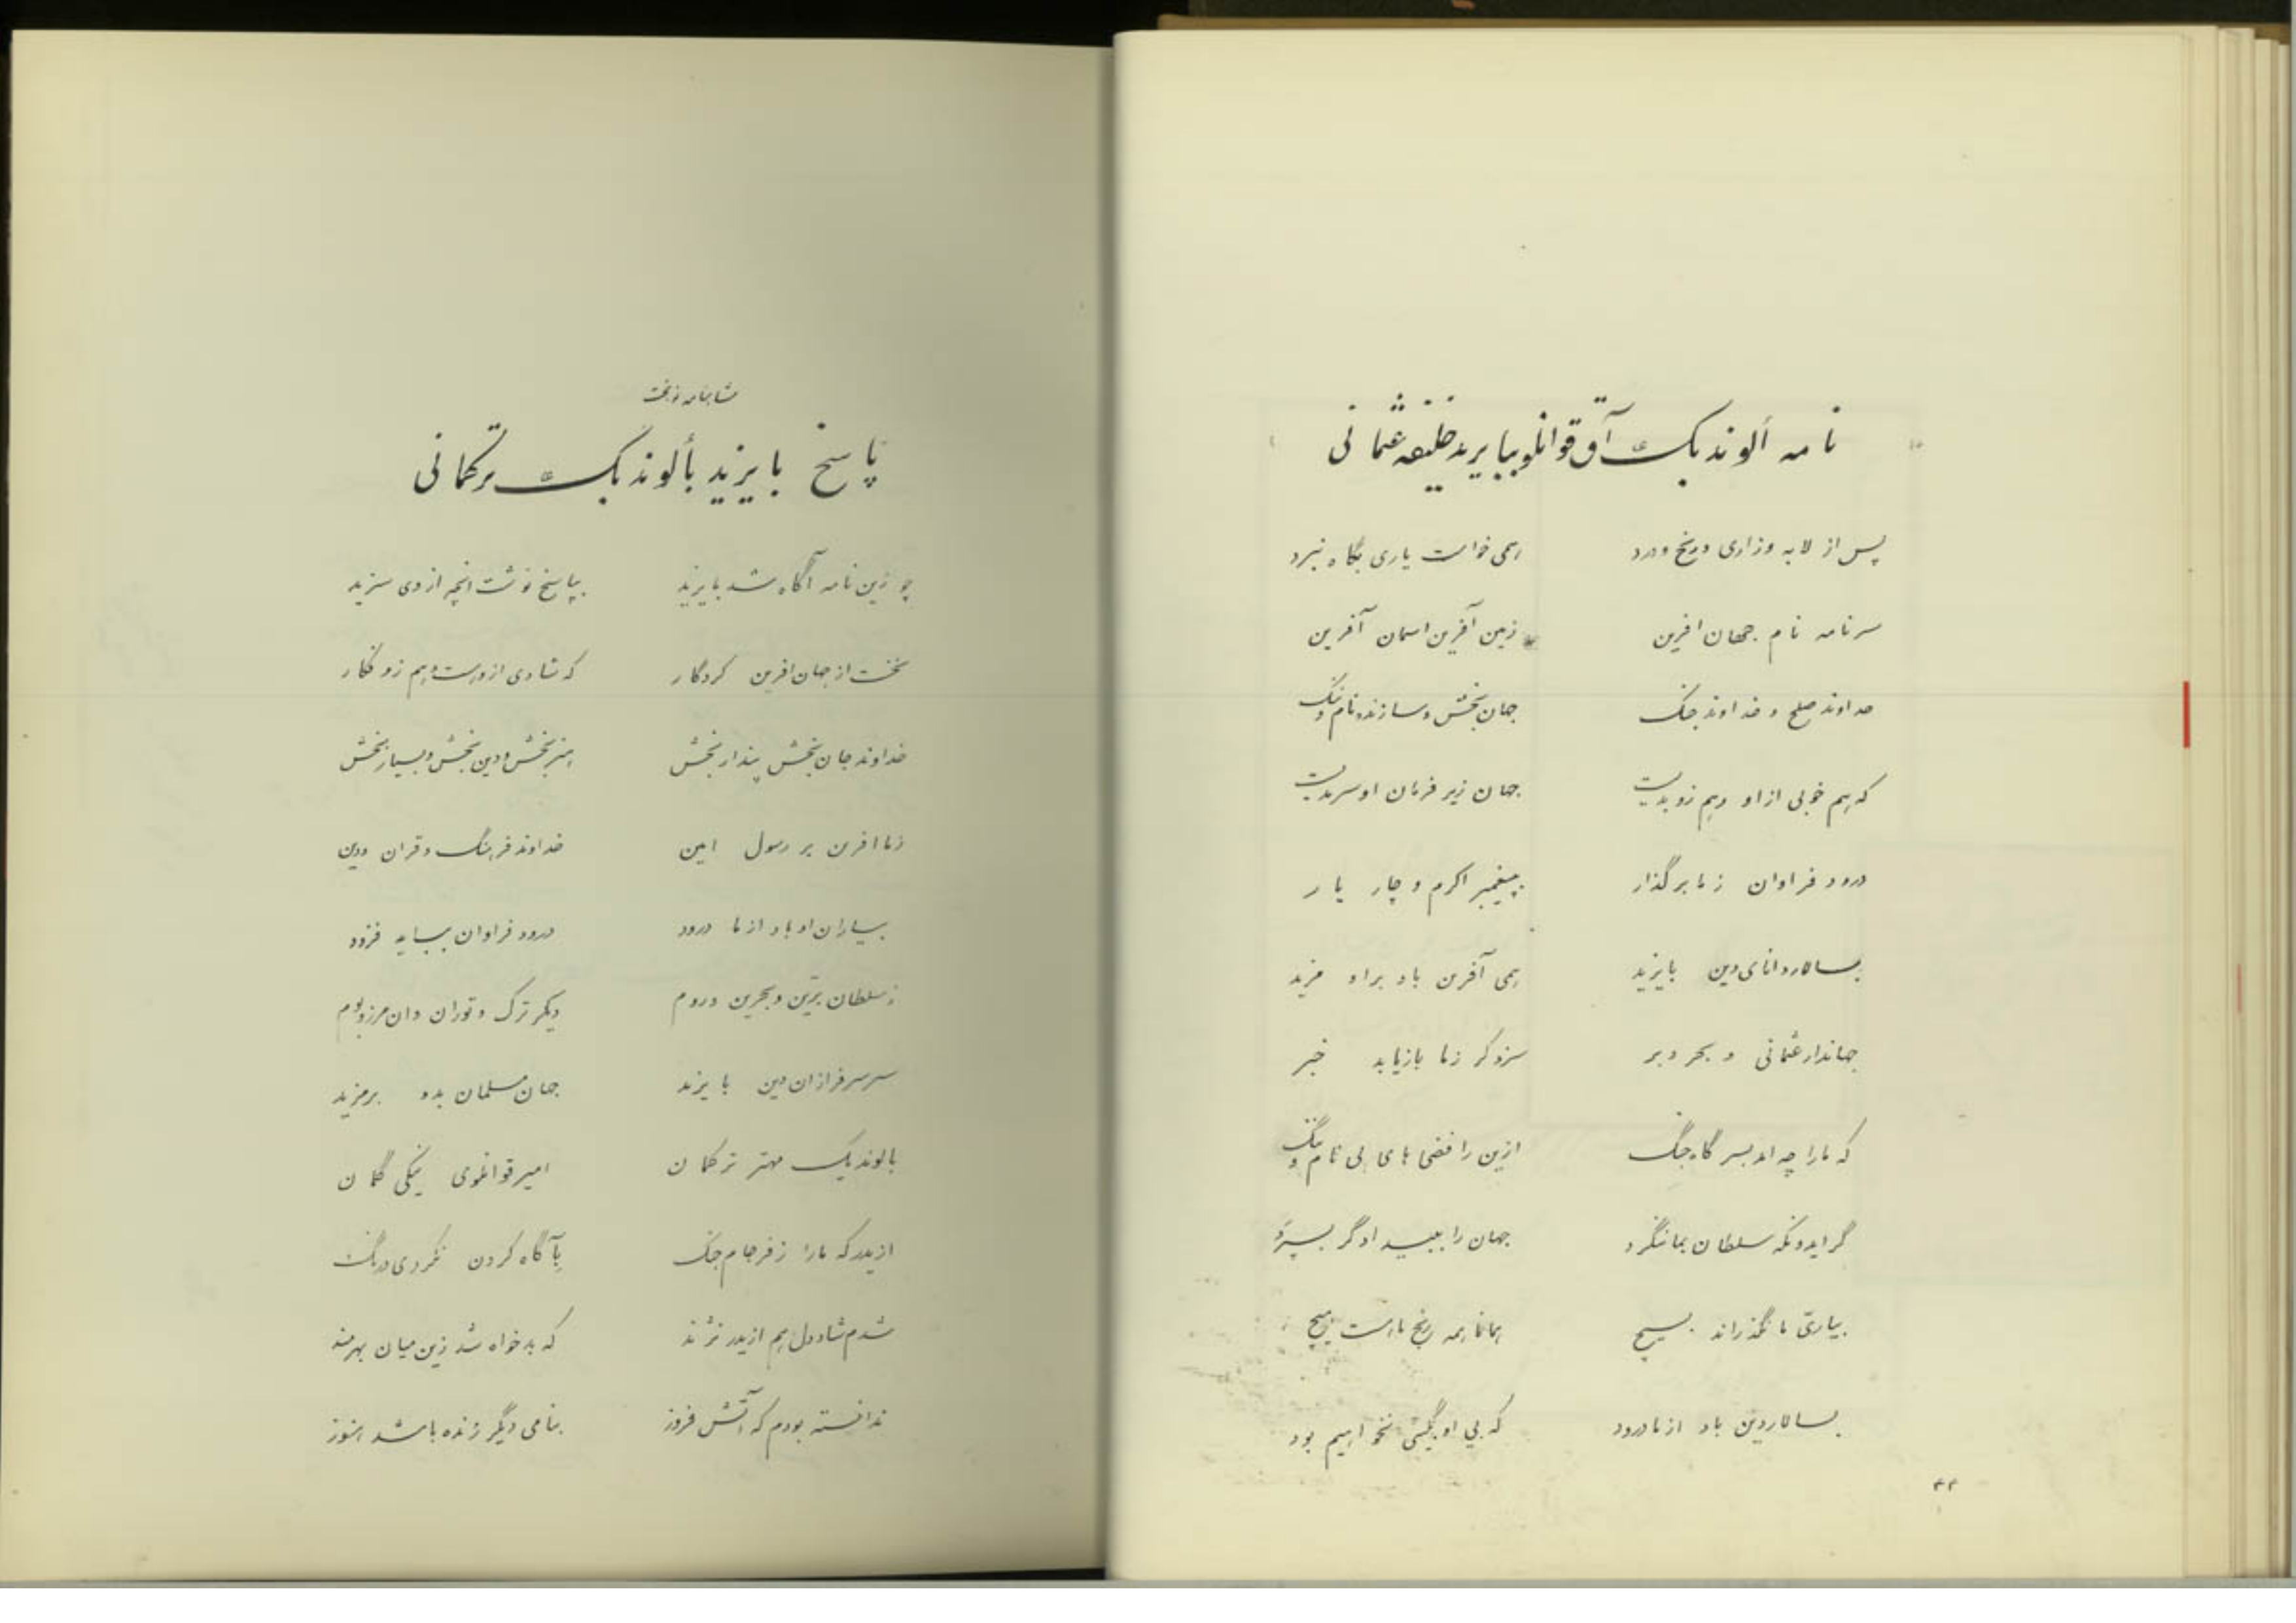 نامه ألوند بک آق قوانلو ببایزید خلیفه عثمانی
پس از لابه وزاری ورنج ودرد همی خواست یاری بگاه نبرد
سرنامه نام جهان افرین زمین آفرین اسمان آفرین
خداوند صلح و خداوند جنگ جهان بخش وسازنده نام وننگ
که هم خوبی از او وهم زو بدیست جهان زیر فرمان او سرمدیست
درود فراوان زما بر گذار بپیغمبر اکرم و چار یار
بسالار ودانای دین بایزید همی آفرین باد براو مزید
جهاندار عثمانی و بحر وبر سزد گر زما بازیابد خبر
که مارا چه امد بسر گاه جنگ ازین رافضی های بی نام وننگ
گر ایدونکه سلطان بما ننگرد جهان را ببیدادگر بسپرد
بیاری ما نگذراند بسیج همانا همه رنج ما هست هیچ
بسالار دین باد از ما درود که بی او بگیتی نخواهیم بود
۴۴
شاهنامه نوبخت
پاسخ بایزید بألوند بک ترکمانی
چو زین نامه آگاه شد بایزید بپاسخ نوشت انچه از وی سزید
نخست از جهان افرین کردگار که شادی از وهست وهم زو فگار
خداوند جان بخش پندار بخش هنر بخش ودین بخش وبسیار بخش
زما افرین بر رسول امین خداوند فرهنگ وقران ودین
بیاران او باد از ما درود درود فراوان بباید فزود
ز سلطان برّین وبحرین وروم دیگر ترک وتوران وان مرز وبوم
سر سرفرازان دین بایزید جهان مسلمان بدو برمزید
بالوند بک مهتر ترکمان امیر قوانلوی نیکی گمان
از ایدر که مارا ز فرجام جنگ بآگاه کردن نکردی درنگ
شدم شاد دل هم از ایدر نژند که بدخواه شد زین میان بهرمند
ندانسته بودم که آتش فروز بنامی دیگر زنده باشد هنوز